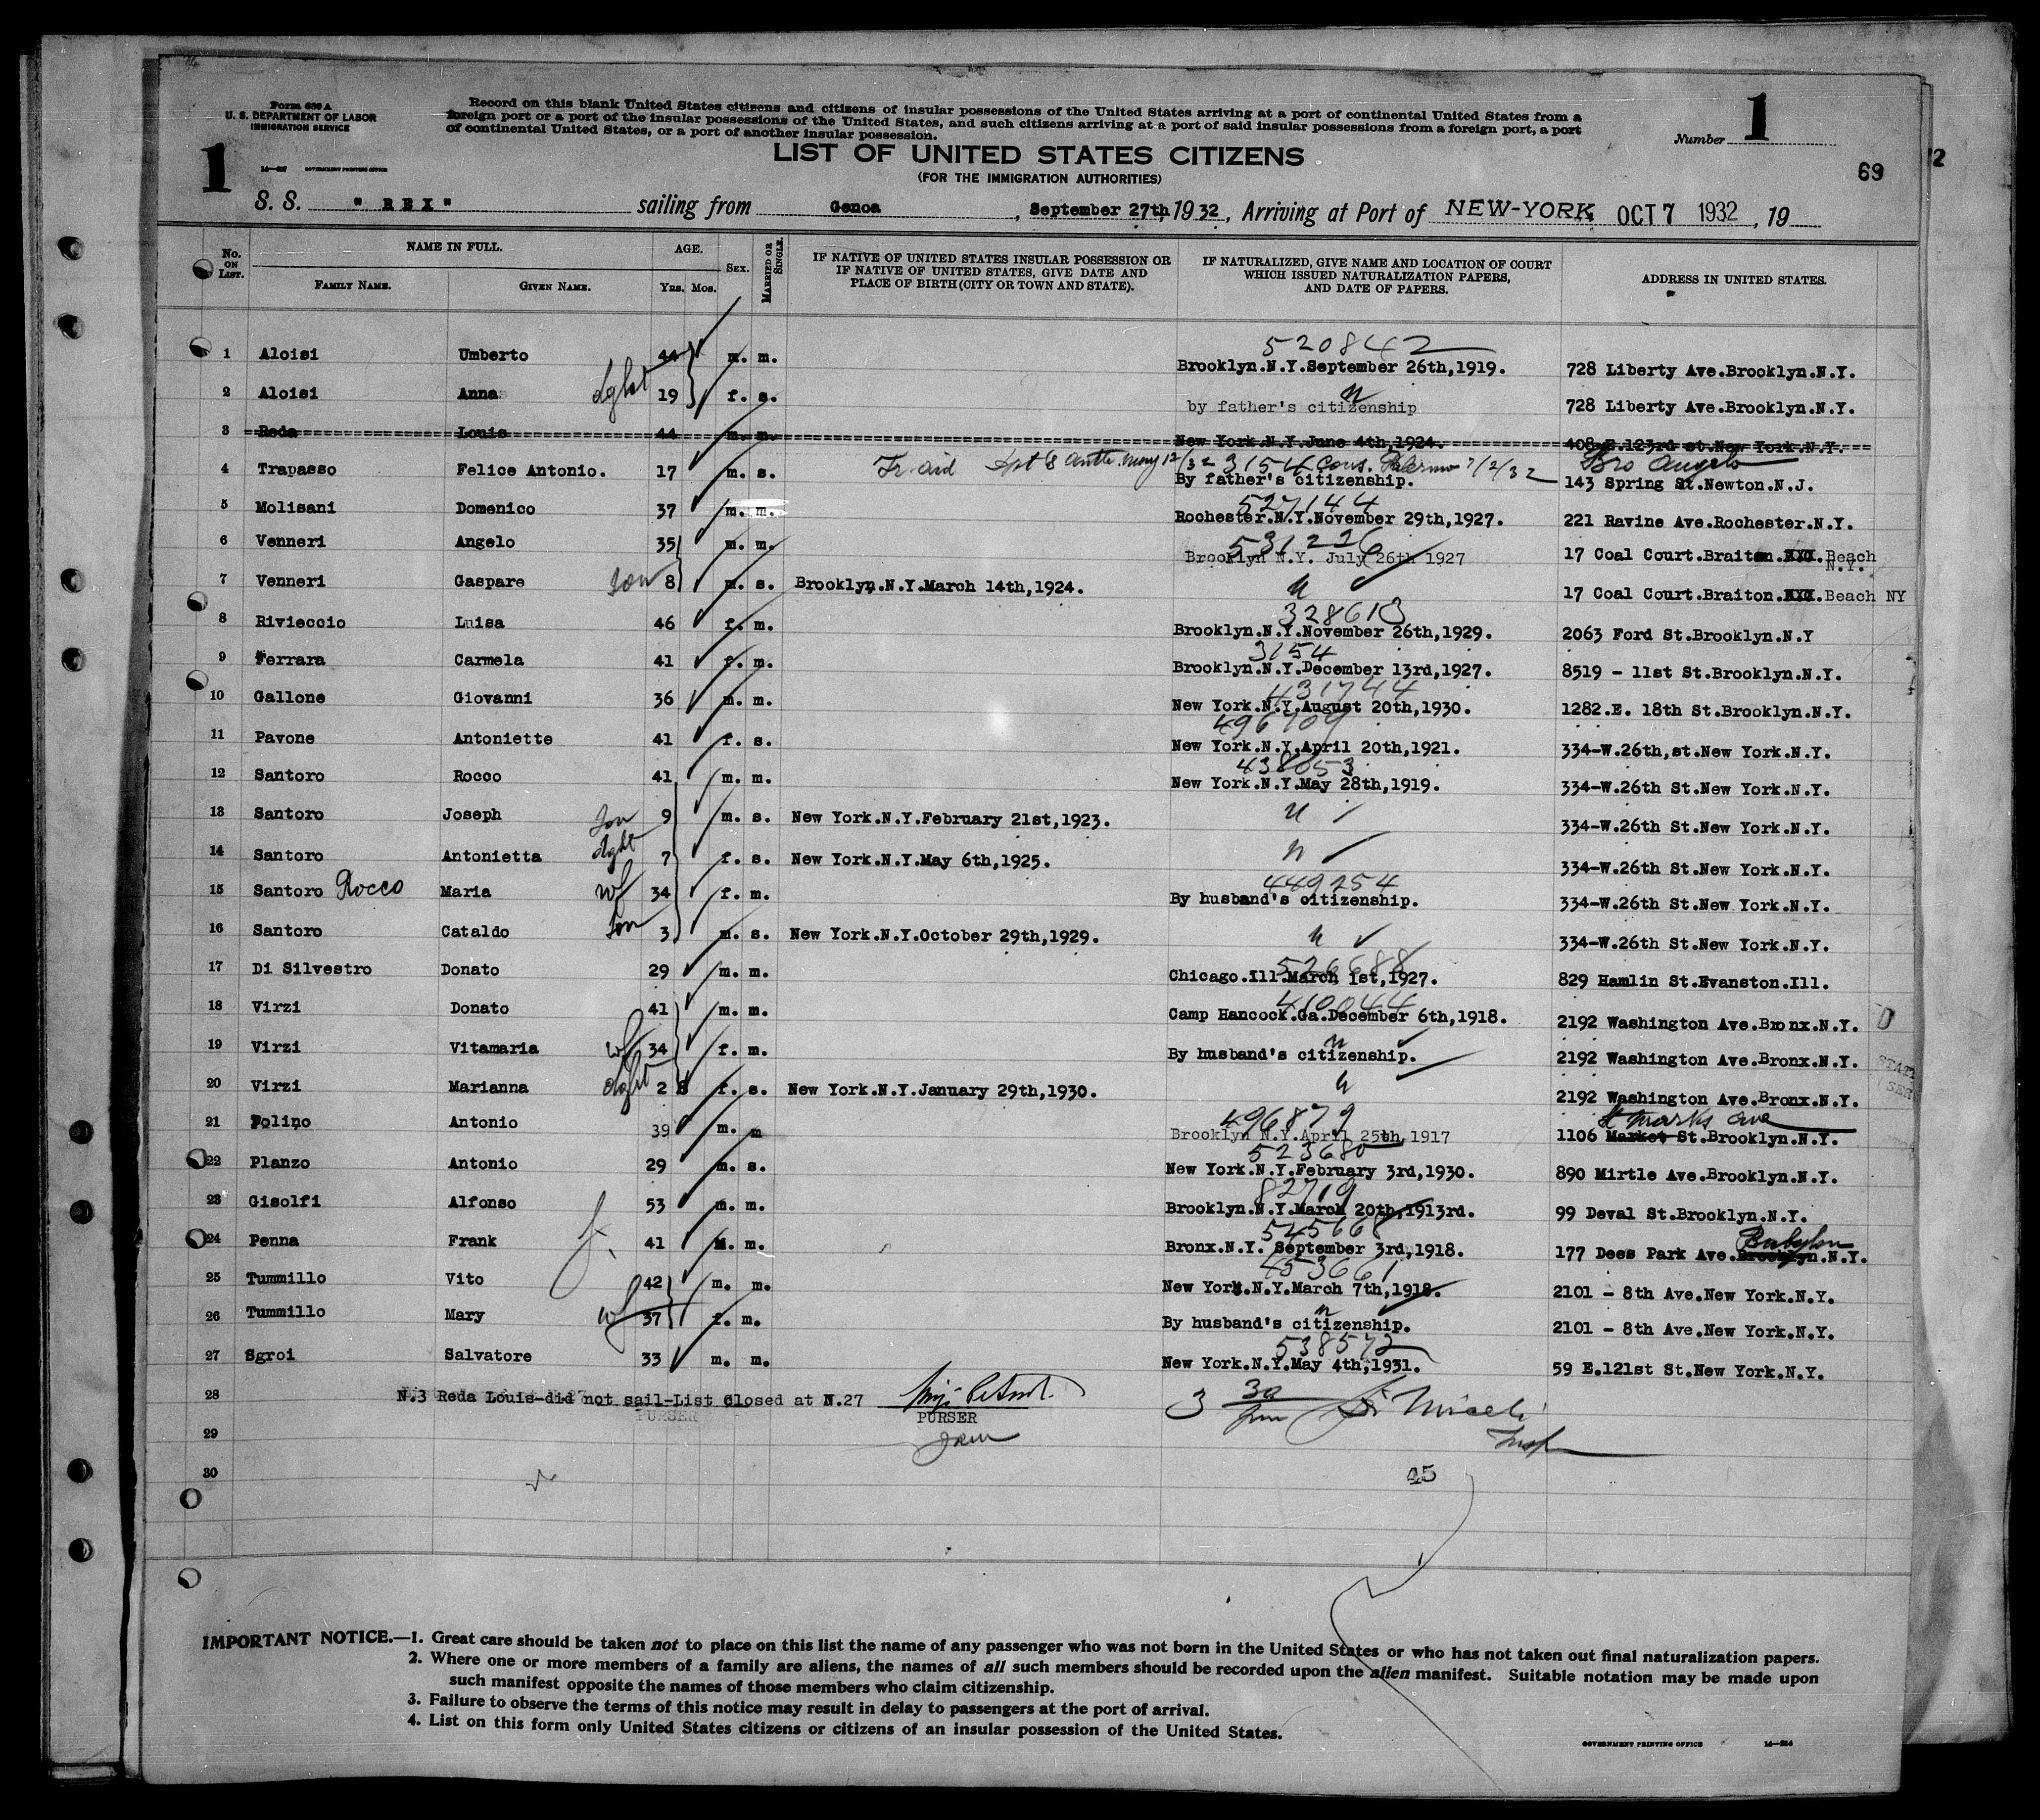 Form 630 A
U. S. DEPARTMENT OF LABOR
IMMIGRATION SERVICE
Record on this blank United States citizens and citizens of insular possessions of the United States arriving at a port of continental United States from a
foreign port or a port of the insular possessions of the United States, and such citizens arriving at a port of said insular possessions from a foreign port, a port
of continental United States, or a port of another insular possession.
Number 1
1
GOVERNMENT PRINTING OFFICE
LIST OF UNITED STATES CITIZENS
(FOR THE IMMIGRATION AUTHORITIES)
69
S. S. "REX" sailing from Genoa, September 27th, 1932, Arriving at Port of NEW-YORK OCT 7 1932, 19
No. ON LIST.
NAME IN FULL.
FAMILY NAME. GIVEN NAME.
AGE.
Yrs. Mos.
SEX.
MARRIED OR SINGLE.
IF NATIVE OF UNITED STATES INSULAR POSSESSION OR
IF NATIVE OF UNITED STATES, GIVE DATE AND
PLACE OF BIRTH (CITY OR TOWN AND STATE).
IF NATURALIZED, GIVE NAME AND LOCATION OF COURT
WHICH ISSUED NATURALIZATION PAPERS,
AND DATE OF PAPERS.
ADDRESS IN UNITED STATES.
520842
1 Aloisi Umberto 44 m. m. Brooklyn.N.Y.September 26th,1919. 728 Liberty Ave.Brooklyn.N.Y.
2 Aloisi Anna dght 19 f. s. by father's citizenship 728 Liberty Ave.Brooklyn.N.Y.
3 Reda Louis 44 m. m. New York.N.Y.June 4th,1924. 408 E.123rd st.New York.N.Y.
3154 Cons. Palermo 7/2/32 Bro Angelo
4 Trapasso Felice Antonio. 17 m. s. By father's citizenship. 143 Spring St.Newton.N.J.
527144
5 Molisani Domenico 37 m. m. Rochester.N.Y.November 29th,1927. 221 Ravine Ave.Rochester.N.Y.
531226
6 Venneri Angelo 35 m. m. Brooklyn N.Y. July 26th 1927 17 Coal Court.Braiton. Beach N.Y.
7 Venneri Gaspare son 8 m. s. Brooklyn.N.Y.March 14th,1924. 17 Coal Court.Braiton. Beach NY
328613
8 Rivieccio Luisa 46 f. m. Brooklyn.N.Y.November 26th,1929. 2063 Ford St.Brooklyn.N.Y
3154
9 Ferrara Carmela 41 f. m. Brooklyn.N.Y.December 13rd,1927. 8519 - 11st St.Brooklyn.N.Y.
431744
10 Gallone Giovanni 36 m. m. New York.N.Y.August 20th,1930. 1282.E. 18th St.Brooklyn.N.Y.
496709
11 Pavone Antoniette 41 f. s. New York.N.Y.April 20th,1921. 334-W.26th,st.New York.N.Y.
438053
12 Santoro Rocco 41 m. m. New York.N.Y.May 28th,1919. 334-W.26th St.New York.N.Y.
13 Santoro Joseph son 9 m. s. New York.N.Y.February 21st,1923. 334-W.26th St.New York.N.Y.
14 Santoro Antonietta dght 7 f. s. New York.N.Y.May 6th,1925. 334-W.26th St.New York.N.Y.
449254
15 Santoro Rocco Maria wf 34 f. m. By husband's citizenship. 334-W.26th St.New York.N.Y.
16 Santoro Cataldo son 3 m. s. New York.N.Y.October 29th,1929. 334-W.26th St.New York.N.Y.
526688
17 Di Silvestro Donato 29 m. m. Chicago.Ill.March 1st,1927. 829 Hamlin St.Evanston.Ill.
410044
18 Virzi Donato 41 m. m. Camp Hancock.Ga.December 6th,1918. 2192 Washington Ave.Bronx.N.Y.
19 Virzi Vitamaria wf 34 f. m. By husband's citizenship. 2192 Washington Ave.Bronx.N.Y.
20 Virzi Marianna dght 2 8 f. s. New York.N.Y.January 29th,1930. 2192 Washington Ave.Bronx.N.Y.
496879 St Marks Ave
21 Polino Antonio 39 m. m Brooklyn N.Y.April 25th,1917 1106 Market St.Brooklyn.N.Y.
523680
22 Planzo Antonio 29 m. s. New York.N.Y.February 3rd,1930. 890 Mirtle Ave.Brooklyn.N.Y.
82719
23 Gisolfi Alfonso 53 m. m. Brooklyn.N.Y.March 20th,1913rd. 99 Deval St.Brooklyn.N.Y.
545668 Babylon
24 Penna Frank 41 M. m. Bronx.N.Y. September 3rd,1918. 177 Dees Park Ave.Brooklyn.N.Y.
453661
25 Tummillo Vito 42 m. m. New York.N.Y.March 7th,1918. 2101 - 8th Ave.New York.N.Y.
26 Tummillo Mary wf 37 f. m. By husband's citizenship. 2101 - 8th Ave.New York.N.Y.
538572
27 Sgroi Salvatore 33 m. m. New York.N.Y.May 4th,1931. 59 E.121st St.New York.N.Y.
28 N.3 Reda Louis-did not sail-List closed at N.27
PURSER PURSER
29
30
45
IMPORTANT NOTICE.—1. Great care should be taken not to place on this list the name of any passenger who was not born in the United States or who has not taken out final naturalization papers.
2. Where one or more members of a family are aliens, the names of all such members should be recorded upon the alien manifest. Suitable notation may be made upon
such manifest opposite the names of those members who claim citizenship.
3. Failure to observe the terms of this notice may result in delay to passengers at the port of arrival.
4. List on this form only United States citizens or citizens of an insular possession of the United States.
GOVERNMENT PRINTING OFFICE